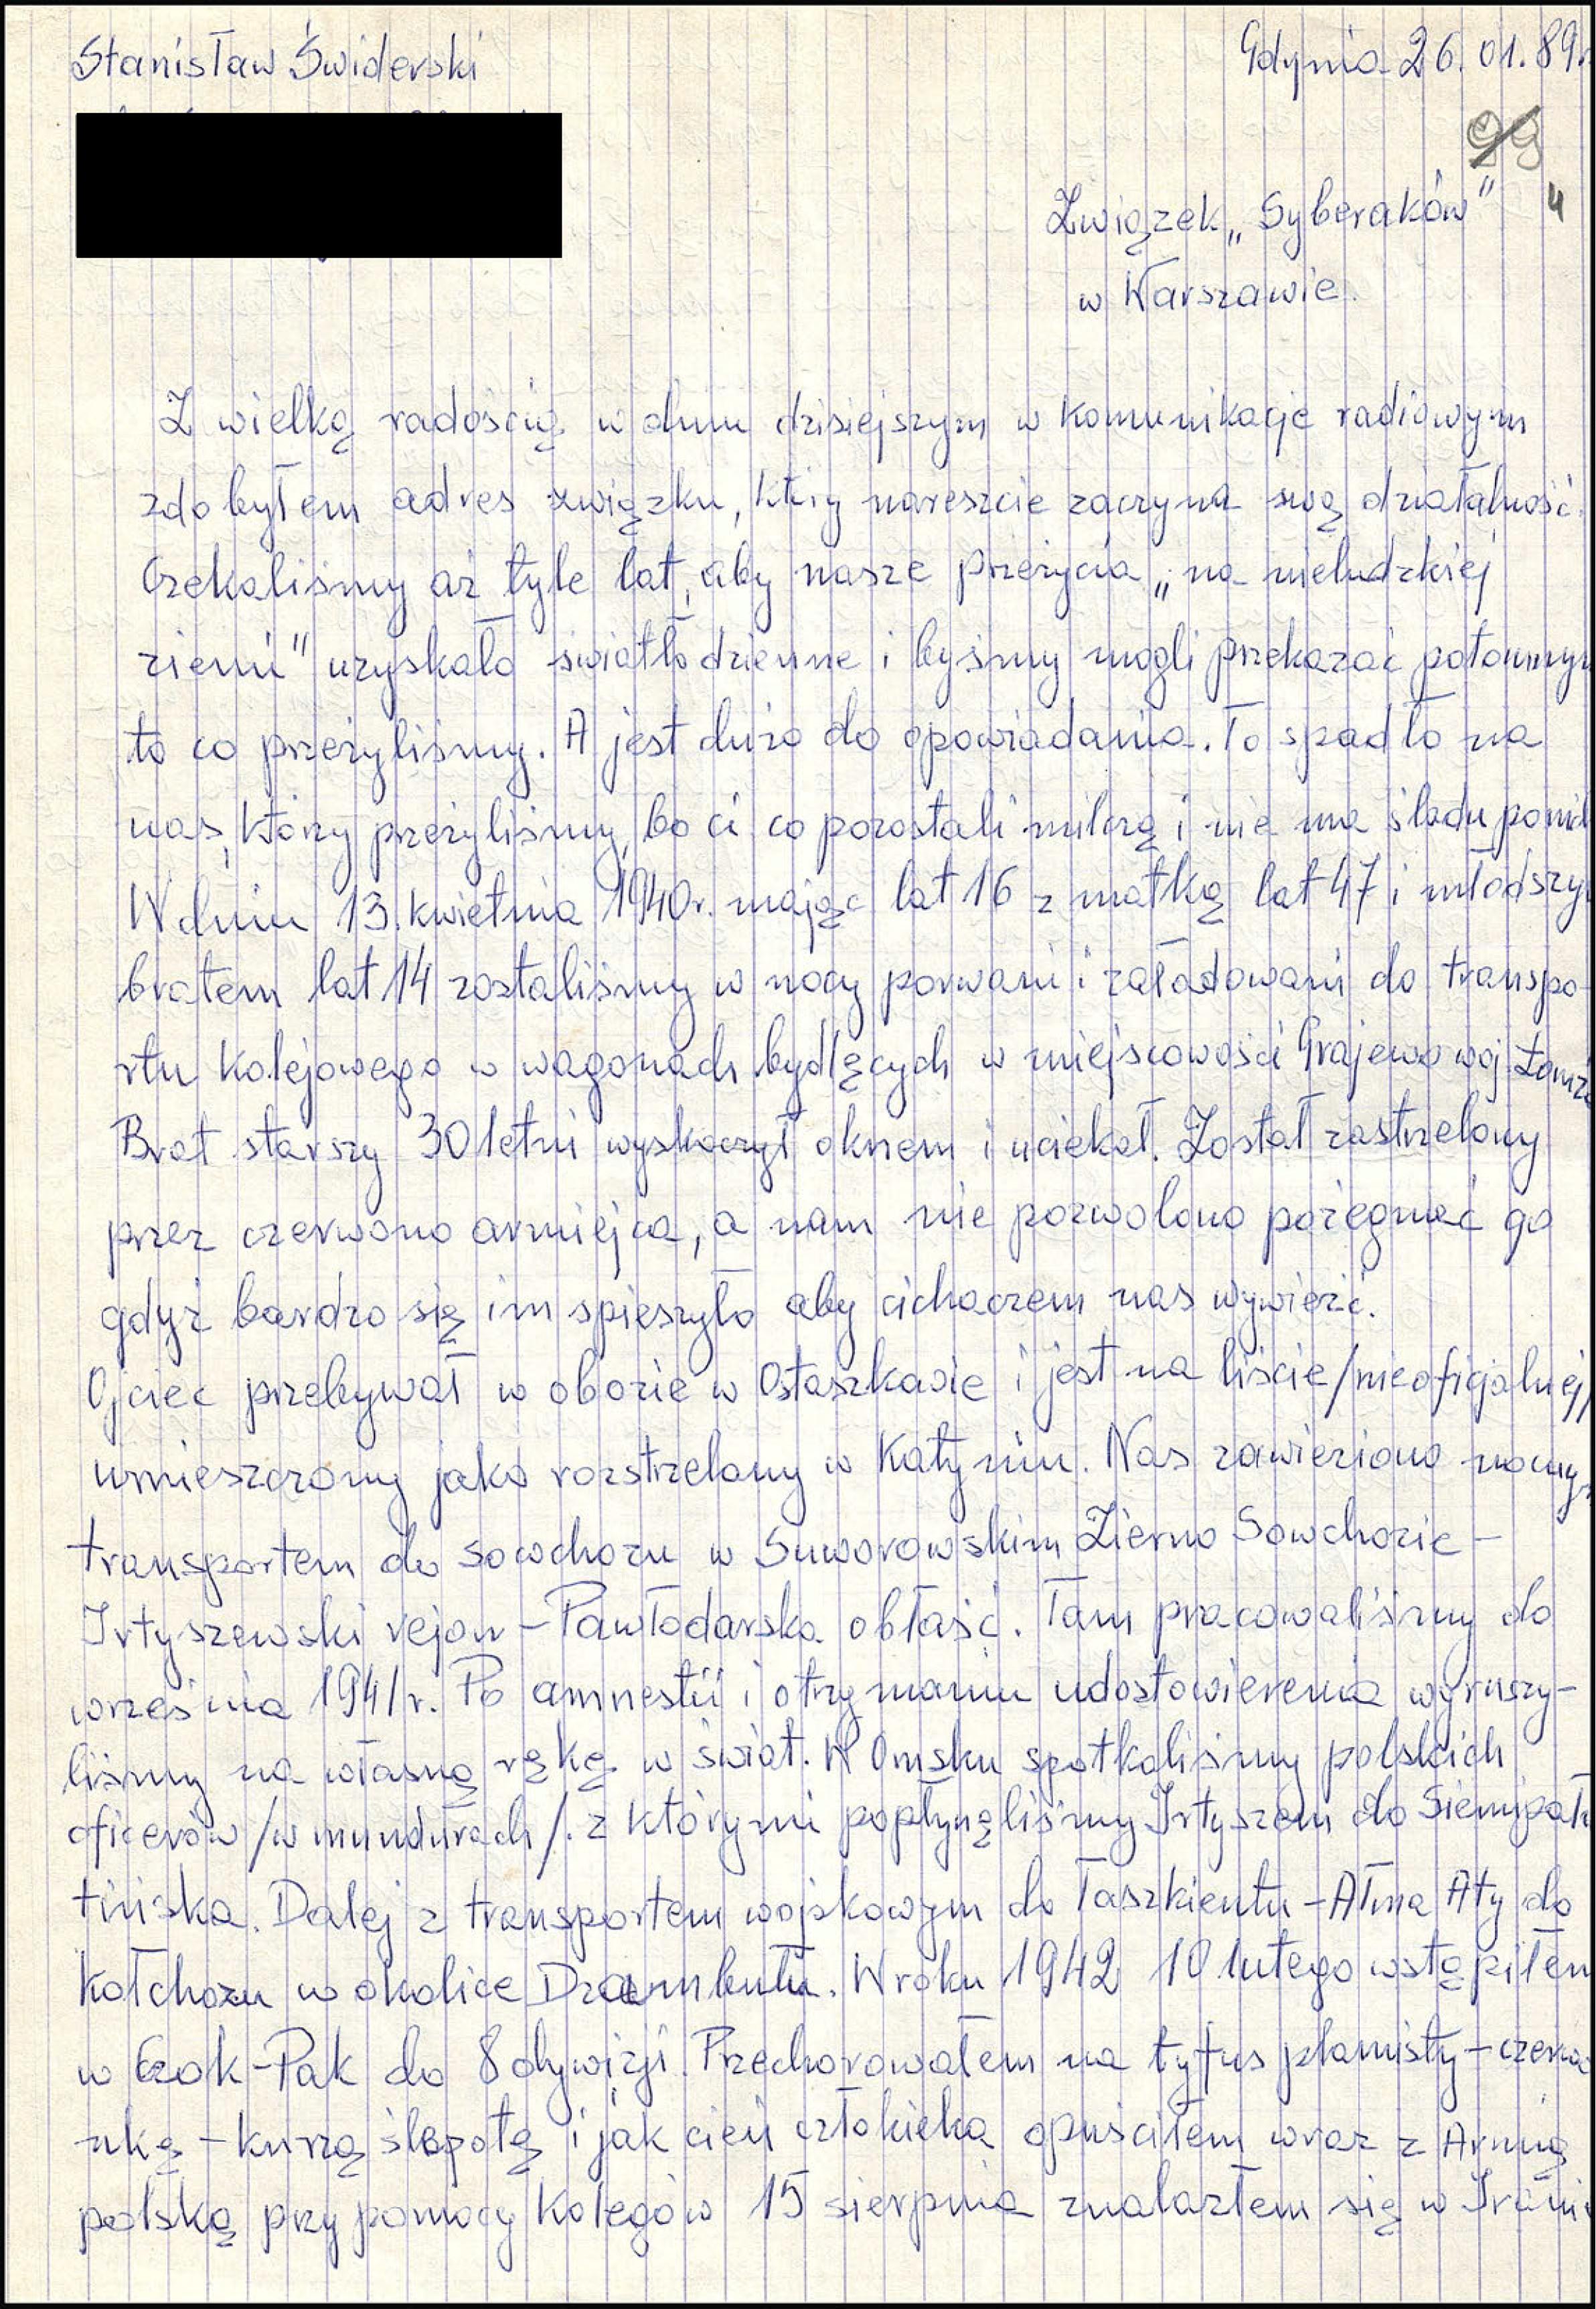 Stanisław Świderski
Gdynia 26.01.89r.
99
4
Związek „Syberaków"
w Warszawie.
Z wielką radością w dniu dzisiejszym w komunikacje radiowym
zdobyłem adres związku, który nareszcie zaczyna swą działalność.
Czekaliśmy aż tyle lat, aby nasze przeżycia „na nieludzkiej
ziemi" uzyskało światło dzienne i byśmy mogli przekazać potomnym
to co przeżyliśmy. A jest dużo do opowiadania. To spadło na
nas, którzy przeżyliśmy, bo ci co pozostali milczą i nie ma śladu po nich
W dniu 13. kwietnia 1940r. mając lat 16 z matką lat 47 i młodszym
bratem lat 14 zostaliśmy w nocy porwani i załadowani do transpo-
rtu kolejowego w wagonach bydlęcych w miejscowości Grajewo woj. Łomża
Brat starszy 30 letni wyskoczył oknem i uciekał. Został zastrzelony
przez czerwono armiejca, a nam nie pozwolono pożegnać go
gdyż bardzo się im spieszyło aby cichaczem nas wywieźć.
Ojciec przebywał w obozie w Ostaszkowie i jest na liście /nieoficjalnej/
umieszczony jako rozstrzelany w Katyniu. Nas zawieziono nocnym
transportem do sowchozu w Suworowskim Zierno Sowchozie -
Irtyszewski rejon - Pawłodarska obłaść. Tam pracowaliśmy do
września 1941r. Po amnestii i otrzymaniu udostowierenia wyruszy-
liśmy na własną rękę w świat. W Omsku spotkaliśmy polskich
oficerów /w mundurach/. z którymi popłynęliśmy Irtyszem do Siemipała
tińska. Dalej z transportem wojskowym do Taszkientu - Ałma Aty do
kołchozu w okolice Dżambułu. W roku 1942 10 lutego wstąpiłem
w Czok-Pak do 8 dywizji. Przechorowałem na tyfus plamisty - czerwo
nkę - kurzą ślepotę i jak cień człowieka opuściłem wraz z Armią
polską przy pomocy kolegów 15 sierpnia znalazłem się w Iranie